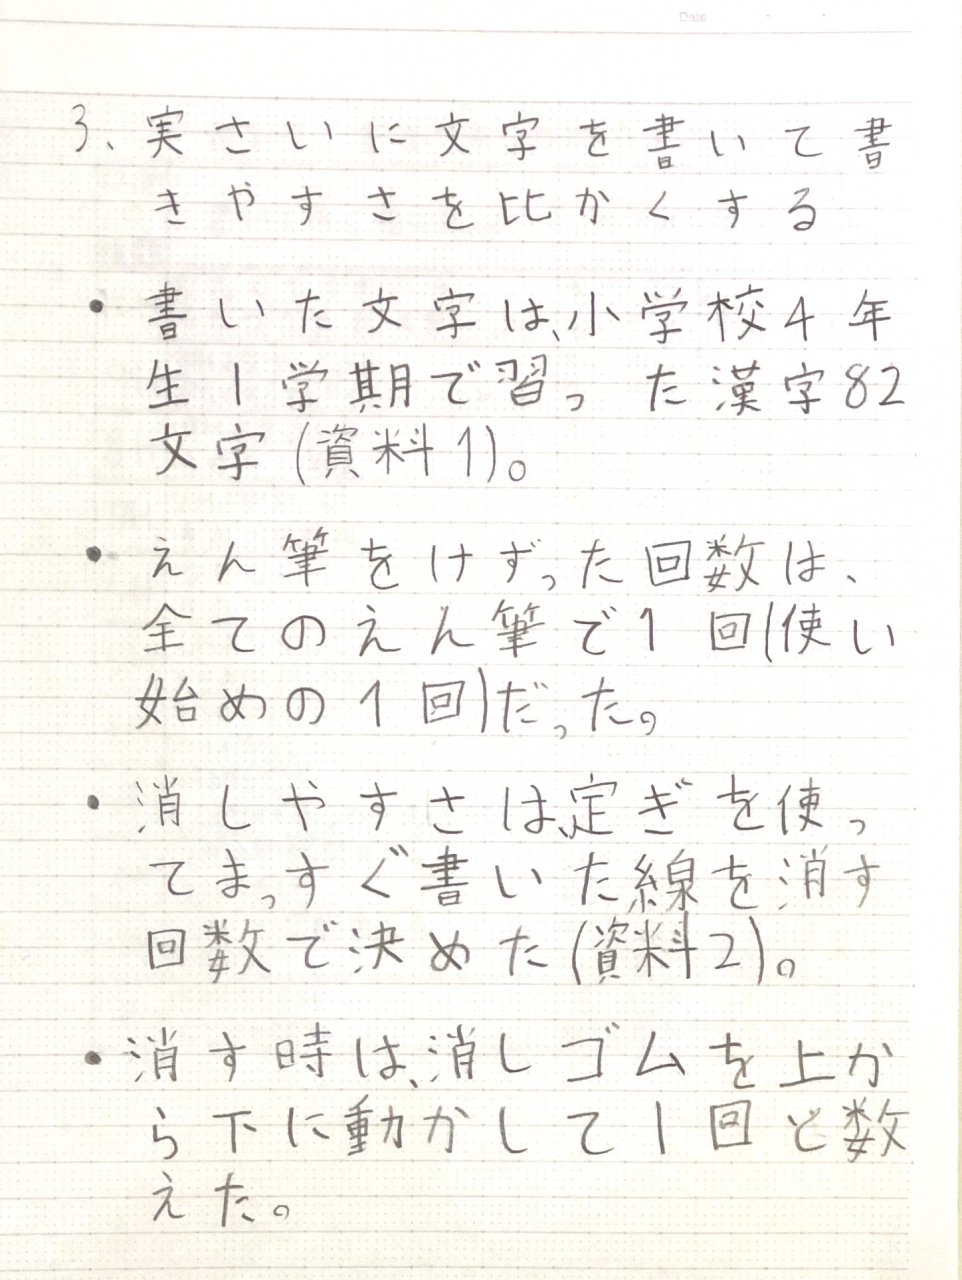 Date
3、実さいに文字を書いて書
きやすさを比かくする
• 書いた文字は、小学校4年
生1学期で習った漢字82
文字(資料1)。
• えん筆をけずった回数は、
全てのえん筆で1回(使い
始めの1回)だった。
• 消しやすさは、定ぎを使っ
てまっすぐ書いた線を消す
回数で決めた(資料2)。
• 消す時は、消しゴムを上か
ら下に動かして1回と数
えた。